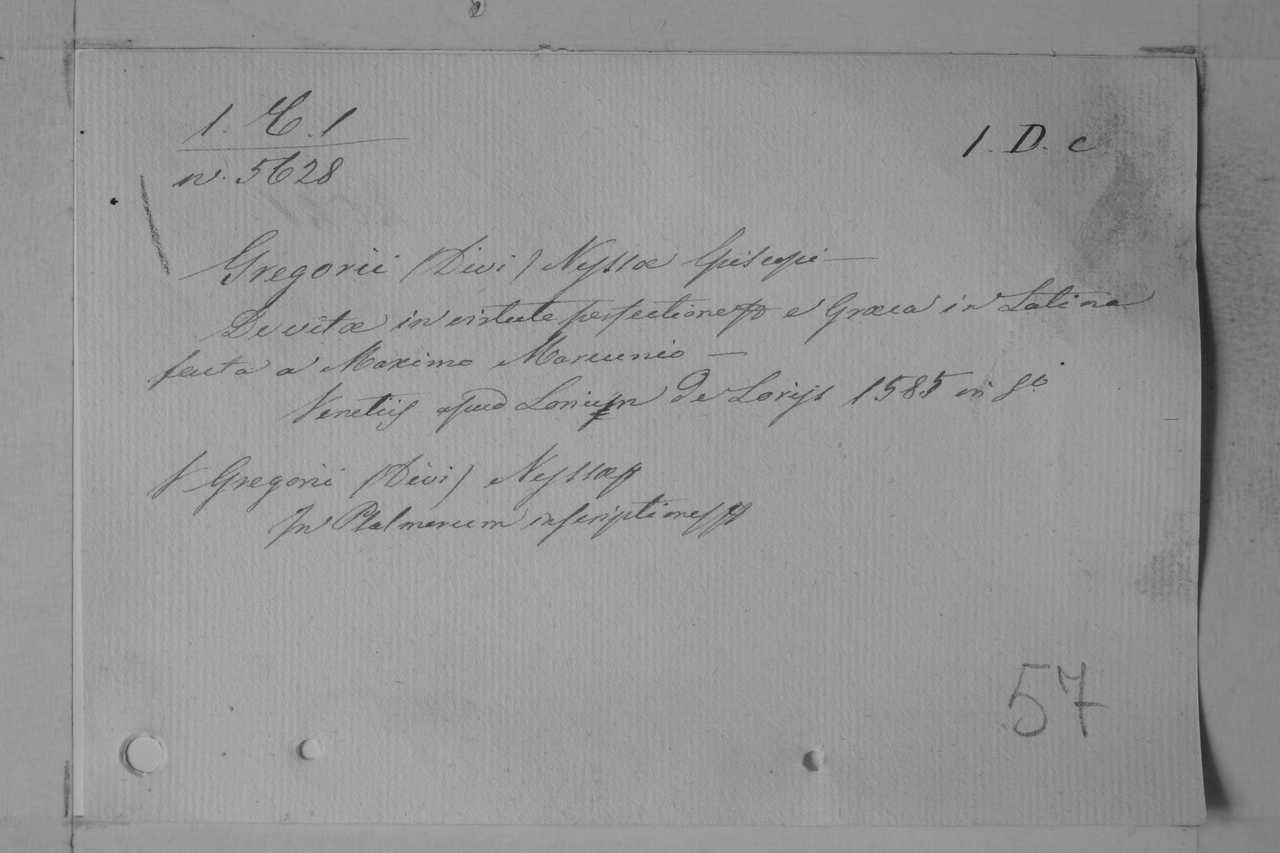 1. C. 1
1. D. c
n. 5628
Gregorii (Divi) Nyssæ Episcopi —
De vitæ in virtute perfectione e Græca in Latina
facta a Maximo Marcunio —
Venetiis apud de Lorijs 1585 in 8º
Gregorii (Divi) Nyssæ
In Psalmorum inscriptiones
57